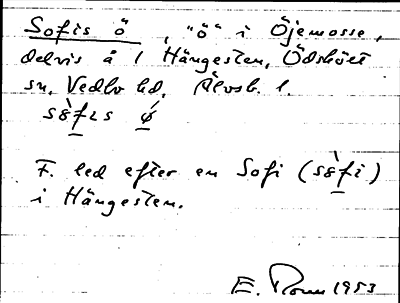 Sofis ö, "ö" i Öjemosse,
delvis å 1 Hängesten, Ödskölt
sn, Vedbo hd, Älvsb. l.
sòfıs ǿ
F. led efter en Sofi (sòfi)
i Hängesten.
E. 1953